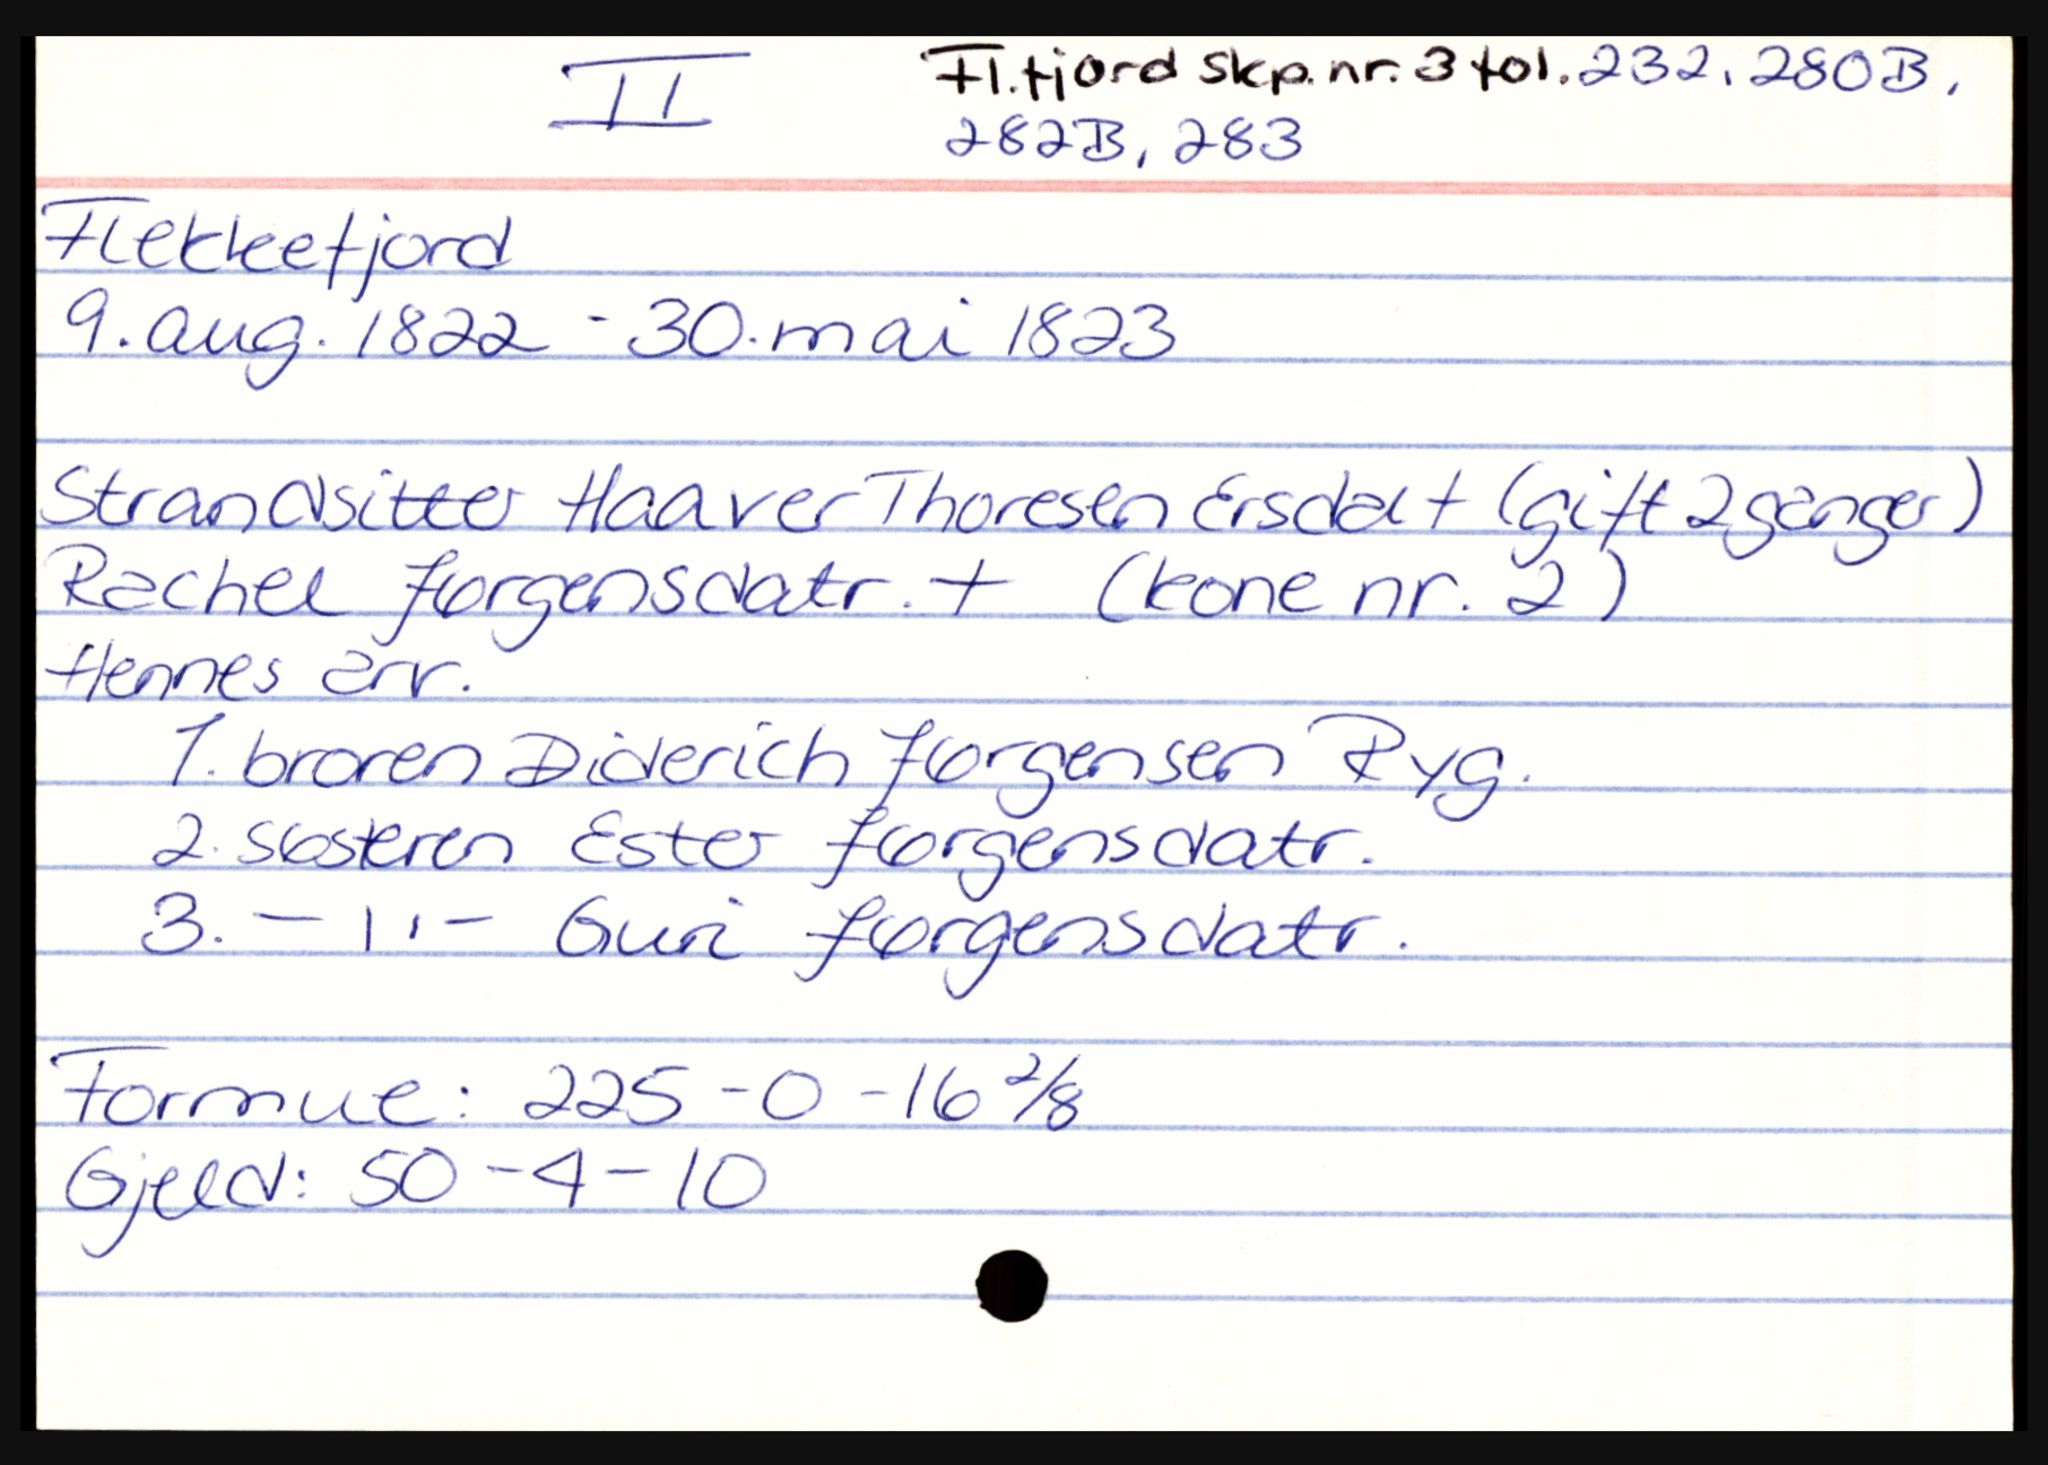 II
Fl.fjord skp.nr. 3 fol. 232, 280B,
282B, 283
Flekkefjord
9. aug. 1822 - 30. mai 1823
Strandsitter Haaver Thoresen Ersdal + (gift 2 ganger)
Rachel Jørgensdatr. + (kone nr. 2)
Hennes arv.
1. broren Diderich Jørgensen Ryg.
2. søsteren Ester Jørgensdatr.
3. - " - Guri Jørgensdatr.
Formue: 225 - 0 - 16 2/8
Gjeld: 50 - 4 - 10